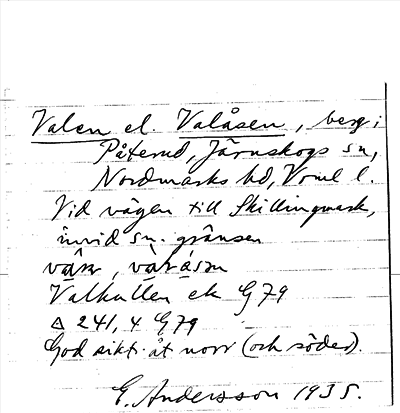 Valen el. Valåsen, berg i
Påterud, Järnskogs sn,
Nordmarks hd, Vrml l.
Vid vägen till Skillingmark,
invid sn. gränsen
Valkullen ek G 79
△ 241,4 G 79
God sikt åt norr (och söder).
E. Andersson 1935.